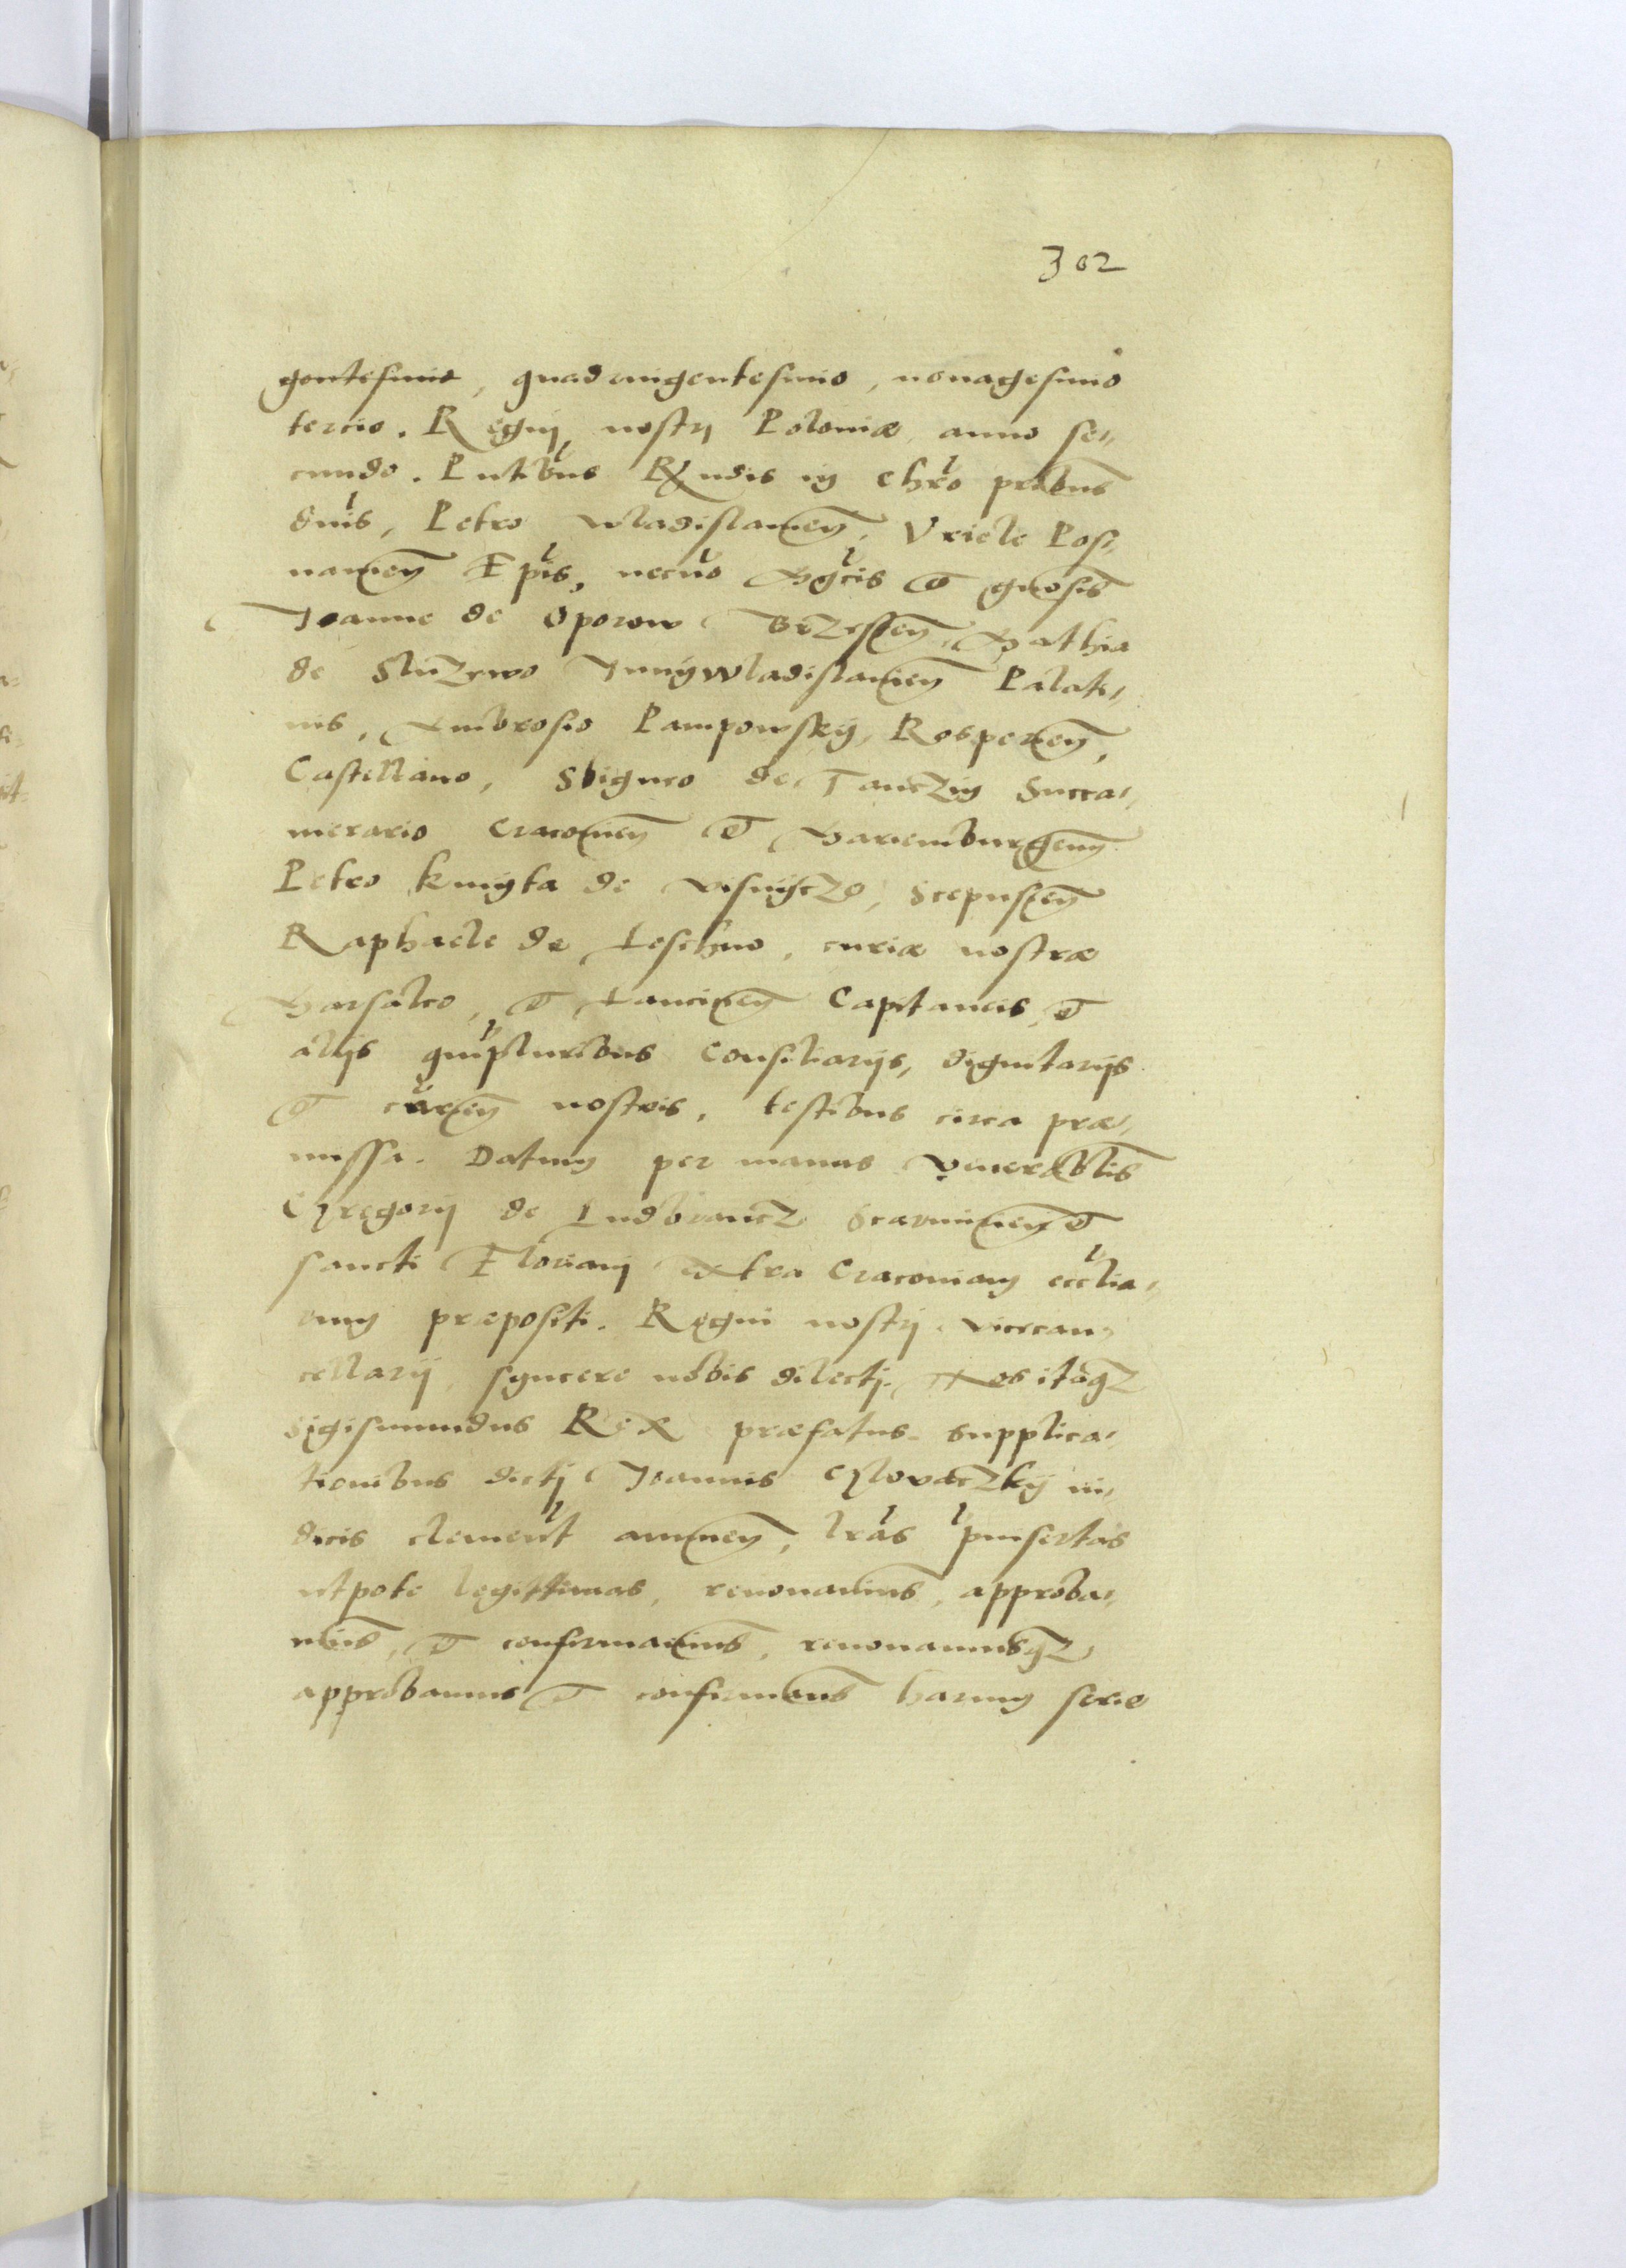 302
gentesimo, quadringentesimo, nonagesimo
tercio. Regnj nostrj Poloniæ anno se,,
cundo. Pntibus Rndis in chro pribus
dnis, Petro Wladislauien, Vriele Pos,,
nanien Epis, necno Mgcis et gnosis
Joanne de Oporow Brzesten, Mathia
de Sluzewo Junywladislauien Palati,,
nis, Ambrosio Pampowsky, Rosperien,
Castellano, Sbigneo de Tanczin Succa,,
merario Cracouien et Mariemburgen
Petro kmyta de visnycze, Scepusien
Raphaele de Leschno, curiæ nostræ
Marsalco, et Lancicien Capitaneis, et
alijs qmpluribus Consiliarijs, dignitarijs
et curien nostris, testibus circa præ,,
missa. Datum per manus venerablis
Gregorij de Ludbrancz Scarmirien et
sancti Floriani extra Cracouiam ecclia,,
rum præpositi. Regni nostrj vicecan,,
cellarij, syncere nobis dilectj. Nos itaqz
Sigismundus Rex præfatus supplica,,
tionibus dictj Joannis Glovaczky iu,,
dicis clement annuen, lras pinsertas
utpote legittimas, renouauims, approba,,
uims, et confirmauims, renouamusqz
approbamus et confirmams harum serie